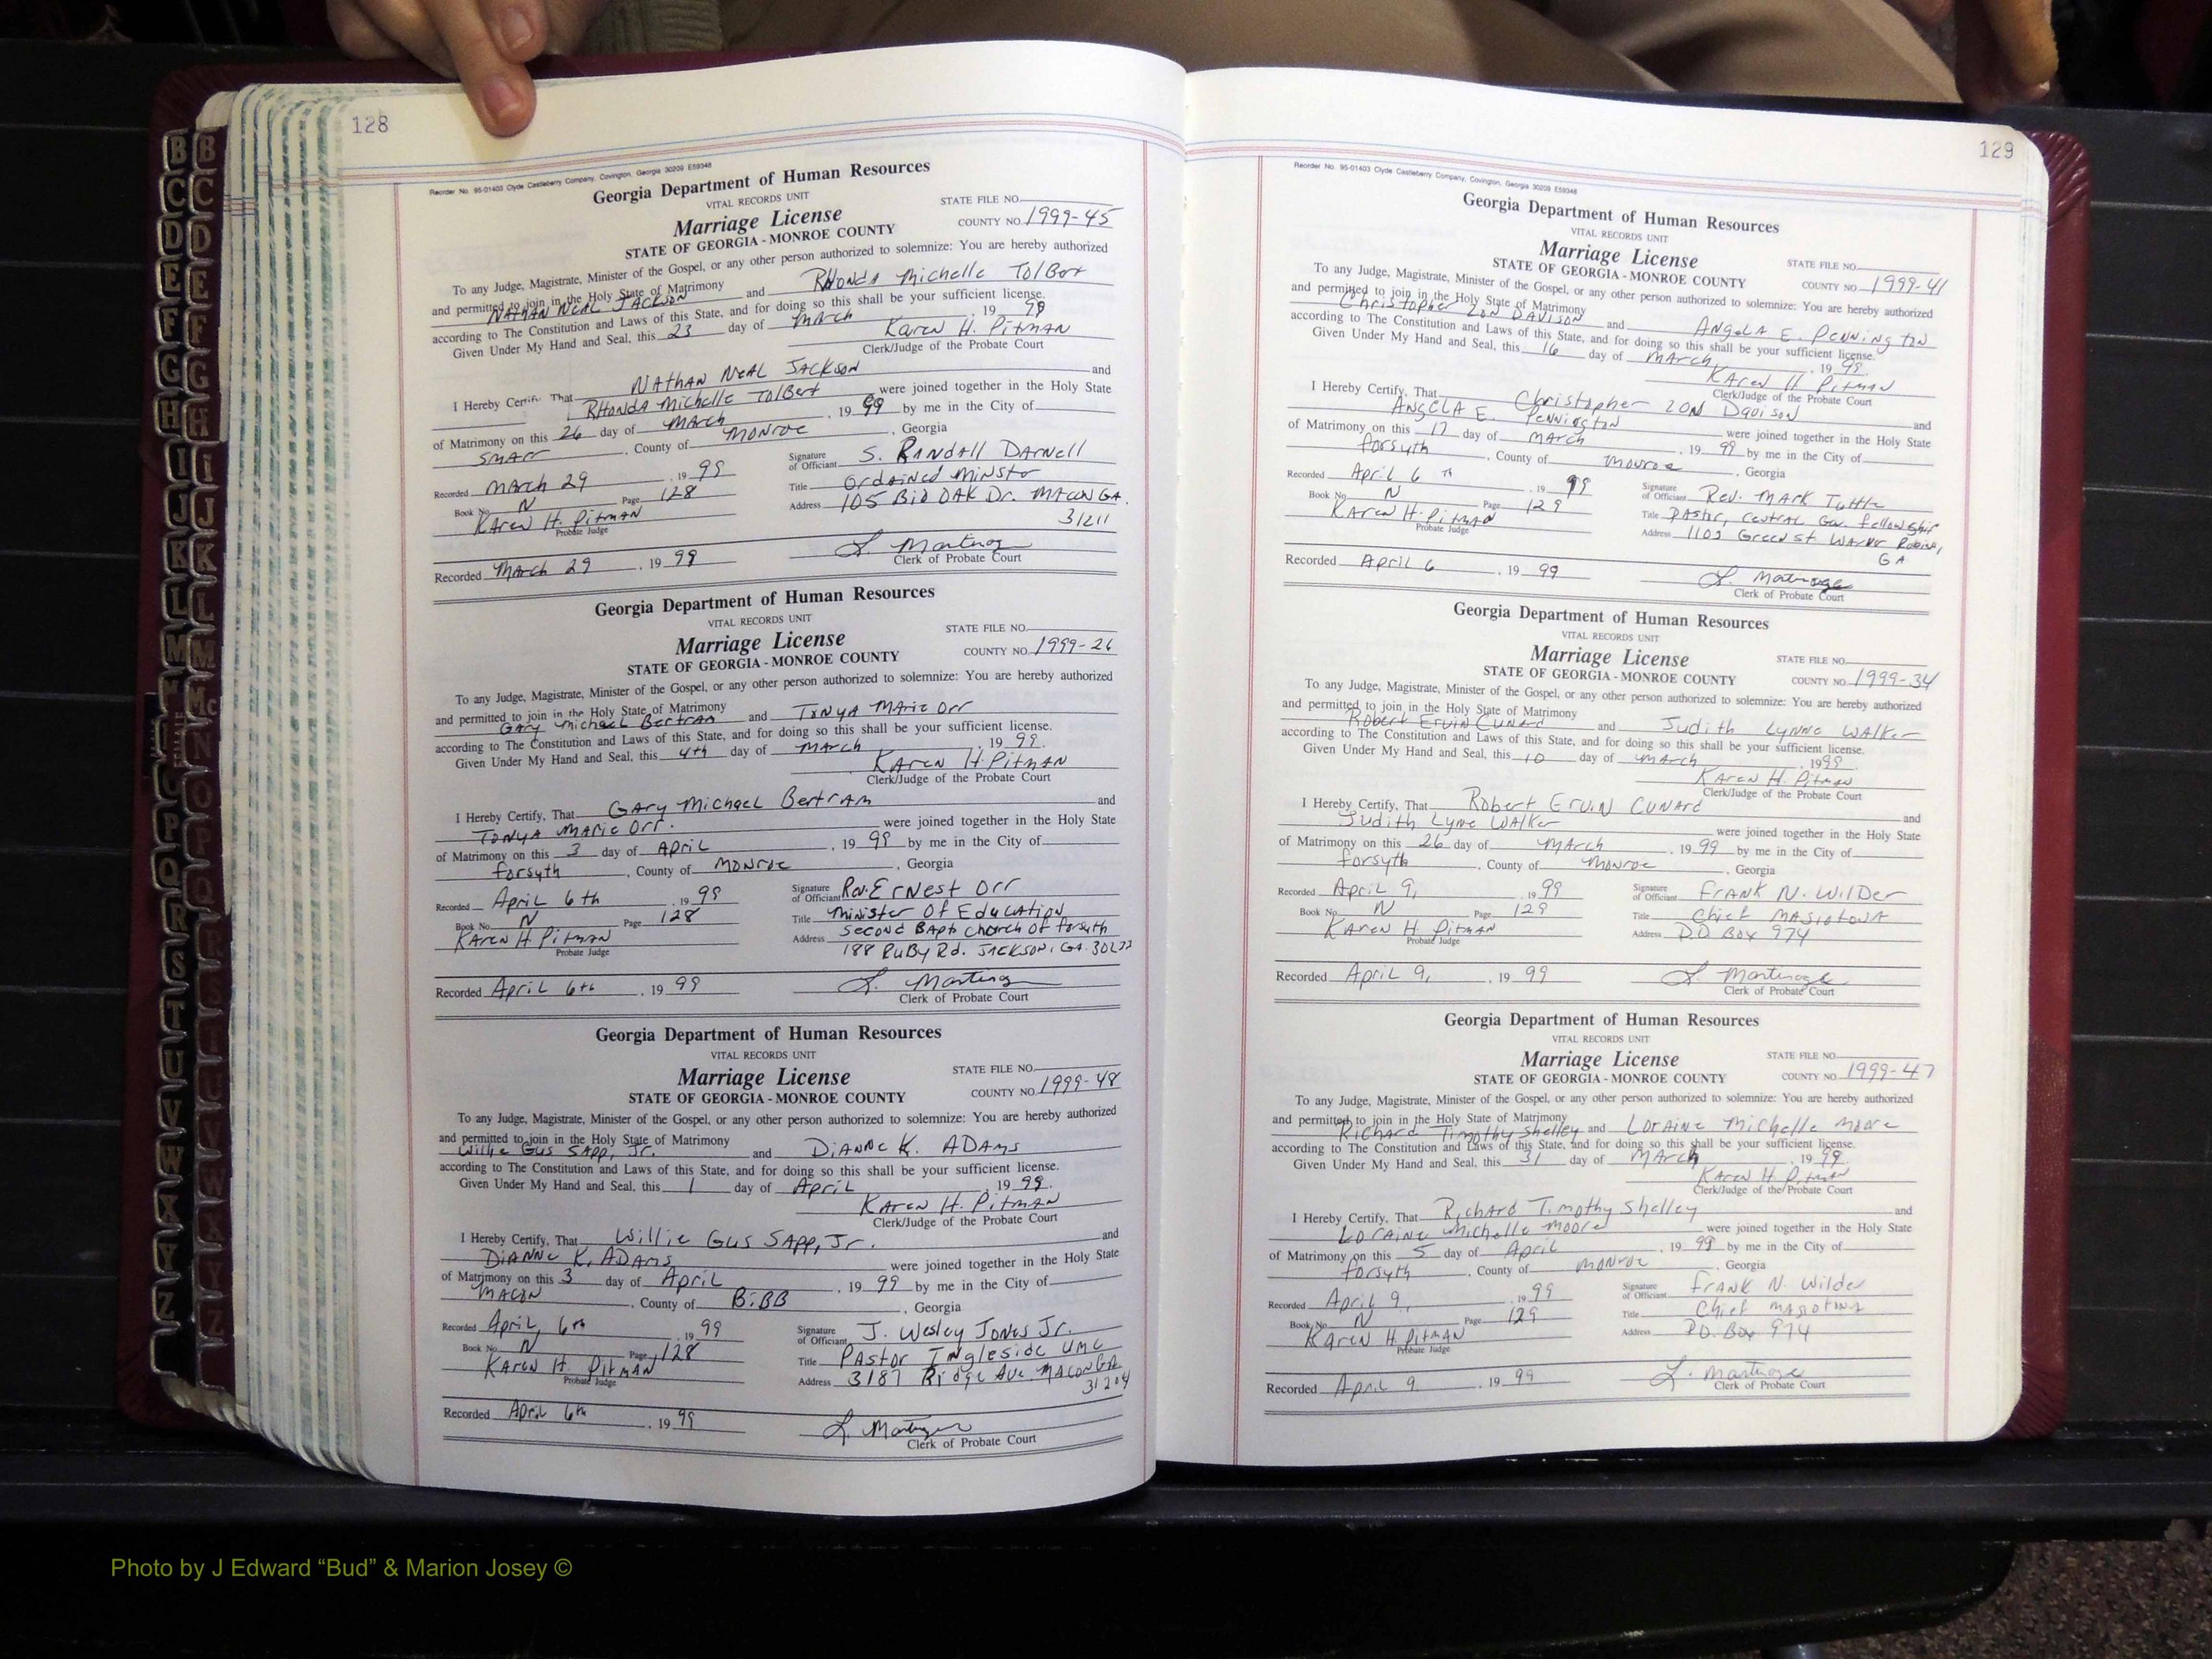 128
Reorder No. 95-01403 Clyde Castleberry Company, Covington, Georgia 30209 E59348
Georgia Department of Human Resources
VITAL RECORDS UNIT
Marriage License
STATE OF GEORGIA - MONROE COUNTY
STATE FILE NO.
COUNTY NO. 1999-45
To any Judge, Magistrate, Minister of the Gospel, or any other person authorized to solemnize: You are hereby authorized
and permitted to join in the Holy State of Matrimony
NATHAN NEAL JACKSON and RHONDA Michelle TolBert
according to The Constitution and Laws of this State, and for doing so this shall be your sufficient license.
Given Under My Hand and Seal, this 23 day of March, 19 99
Karen H. Pitman
Clerk/Judge of the Probate Court
I Hereby Certify That NATHAN NEAL JACKSON and
RHONDA Michelle TolBert were joined together in the Holy State
of Matrimony on this 26 day of March, 19 99 by me in the City of
Smarr, County of Monroe, Georgia
Recorded March 29, 19 99
Book No. N Page 128
Karen H. Pitman
Probate Judge
Signature of Officiant S. Randall Darnell
Title ordained minstor
Address 105 Bid OAK Dr. MACON GA.
31211
Recorded March 29, 19 99
Clerk of Probate Court
Georgia Department of Human Resources
VITAL RECORDS UNIT
Marriage License
STATE OF GEORGIA - MONROE COUNTY
STATE FILE NO.
COUNTY NO. 1999-26
To any Judge, Magistrate, Minister of the Gospel, or any other person authorized to solemnize: You are hereby authorized
and permitted to join in the Holy State of Matrimony
Gary Michael Bertram and Tonya Marie Orr
according to The Constitution and Laws of this State, and for doing so this shall be your sufficient license.
Given Under My Hand and Seal, this 4th day of March, 19 99.
Karen H. Pitman
Clerk/Judge of the Probate Court
I Hereby Certify, That Gary Michael Bertram and
Tonya Marie Orr. were joined together in the Holy State
of Matrimony on this 3 day of April, 19 99 by me in the City of
forsyth, County of Monroe, Georgia
Recorded April 6th, 19 99
Book No. N Page 128
Karen H. Pitman
Probate Judge
Signature of Officiant Rev. Ernest Orr
Title Minister Of Education
Address Second Bapt church of forsyth
188 Ruby Rd. JACKSON, GA.
Recorded April 6th, 19 99
Clerk of Probate Court
Georgia Department of Human Resources
VITAL RECORDS UNIT
Marriage License
STATE OF GEORGIA - MONROE COUNTY
STATE FILE NO.
COUNTY NO. 1999-48
To any Judge, Magistrate, Minister of the Gospel, or any other person authorized to solemnize: You are hereby authorized
and permitted to join in the Holy State of Matrimony
Willie Gus SAPP, Jr. and DiANNE K. ADAMS
according to The Constitution and Laws of this State, and for doing so this shall be your sufficient license.
Given Under My Hand and Seal, this 1 day of April, 19 99.
Karen H. Pitman
Clerk/Judge of the Probate Court
I Hereby Certify, That Willie Gus SAPP, Jr. and
DiANNE K. ADAMS were joined together in the Holy State
of Matrimony on this 3 day of April, 19 99 by me in the City of
MACON, County of BiBB, Georgia
Recorded April, 6th, 19 99
Book No. N Page 128
Karen H. Pitman
Probate Judge
Signature of Officiant J. Wesley Jones Jr.
Title Pastor Ingleside UMC
Address 3187 Ridge Ave MACON GA
31204
Recorded April 6th, 19 99
Clerk of Probate Court
129
Reorder No. 95-01403 Clyde Castleberry Company, Covington, Georgia 30209 E59348
Georgia Department of Human Resources
VITAL RECORDS UNIT
Marriage License
STATE OF GEORGIA - MONROE COUNTY
STATE FILE NO.
COUNTY NO. 1999-41
To any Judge, Magistrate, Minister of the Gospel, or any other person authorized to solemnize: You are hereby authorized
and permitted to join in the Holy State of Matrimony
Christopher ZON DAVISON and Angela E. Pennington
according to The Constitution and Laws of this State, and for doing so this shall be your sufficient license.
Given Under My Hand and Seal, this 16 day of March, 19 99.
Karen H. Pitman
Clerk/Judge of the Probate Court
I Hereby Certify, That Christopher ZON Davison and
ANGELA E. Pennington were joined together in the Holy State
of Matrimony on this 17 day of March, 19 99 by me in the City of
forsyth, County of Monroe, Georgia
Recorded April 6 th, 19 99
Book No. N Page 129
Karen H. Pitman
Probate Judge
Signature of Officiant Rev. Mark Tuttle
Title Pastor, Central Ga. fellowship
Address 1103 Green st Warner Robins,
GA
Recorded April 6, 19 99
Clerk of Probate Court
Georgia Department of Human Resources
VITAL RECORDS UNIT
Marriage License
STATE OF GEORGIA - MONROE COUNTY
STATE FILE NO.
COUNTY NO. 1999-34
To any Judge, Magistrate, Minister of the Gospel, or any other person authorized to solemnize: You are hereby authorized
and permitted to join in the Holy State of Matrimony
Robert Ervin Cunard and Judith Lynne Walker
according to The Constitution and Laws of this State, and for doing so this shall be your sufficient license.
Given Under My Hand and Seal, this 10 day of March, 1999.
Karen H. Pitman
Clerk/Judge of the Probate Court
I Hereby Certify, That Robert Ervin Cunard and
Judith Lyne Walker were joined together in the Holy State
of Matrimony on this 26 day of March, 19 99 by me in the City of
forsyth, County of Monroe, Georgia
Recorded April 9, 19 99
Book No. N Page 129
Karen H. Pitman
Probate Judge
Signature of Officiant Frank N. Wilder
Title Chief
Address P.O Box 974
Recorded April 9, 19 99
Clerk of Probate Court
Georgia Department of Human Resources
VITAL RECORDS UNIT
Marriage License
STATE OF GEORGIA - MONROE COUNTY
STATE FILE NO.
COUNTY NO. 1999-47
To any Judge, Magistrate, Minister of the Gospel, or any other person authorized to solemnize: You are hereby authorized
and permitted to join in the Holy State of Matrimony
Richard Timothy Shelley and Loraine Michelle Moore
according to The Constitution and Laws of this State, and for doing so this shall be your sufficient license.
Given Under My Hand and Seal, this 31 day of March, 19 99.
Karen H. Pitman
Clerk/Judge of the Probate Court
I Hereby Certify, That Richard Timothy Shelley and
Loraine Michelle Moore were joined together in the Holy State
of Matrimony on this 5 day of April, 19 99 by me in the City of
forsyth, County of Monroe, Georgia
Recorded April 9, 19 99
Book No. N Page 129
Karen H. Pitman
Probate Judge
Signature of Officiant Frank N. Wilder
Title Chief
Address P.O. Box 974
Recorded April 9, 19 99
Clerk of Probate Court
Photo by J Edward “Bud” & Marion Josey ©